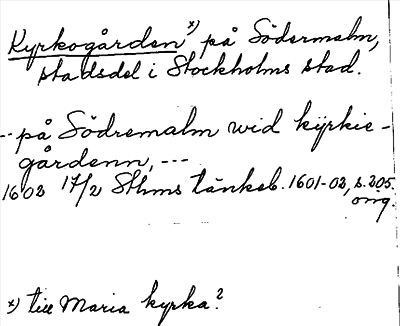 Kyrkogården x) på Södermalm,
stadsdel i Stockholms stad.
-- på Södremalm wid kÿrkie-
gårdenn, ---
1602 17/2 Sthms tänkeb. 1601-02, s. 205.
omg.
x) till Maria kyrka?